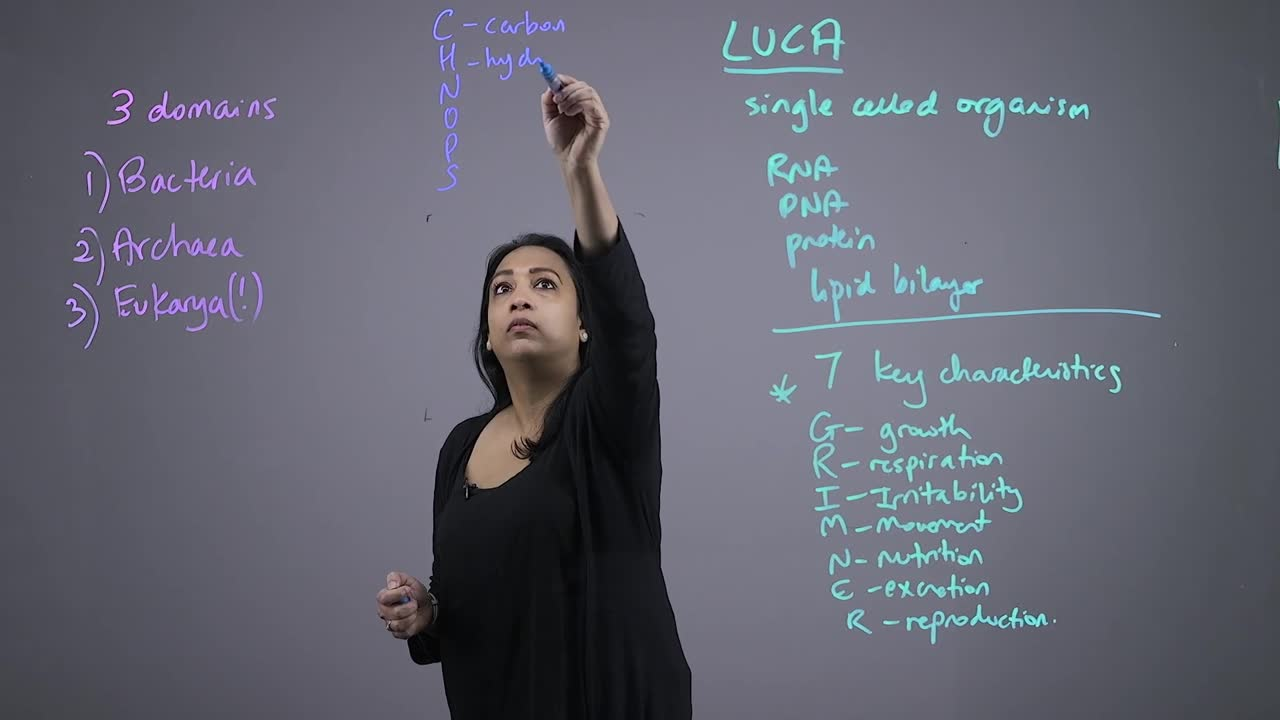 3 domains
1) Bacteria
2) Archaea
3) Eukarya(!)
C - carbon
H - hyd
N
O
P
S
LUCA
single celled organism
RNA
DNA
protein
lipid bilayer
* 7 key characteristics
G - growth
R - respiration
I - Irritability
M - movement
N - nutrition
E - excretion
R - reproduction.